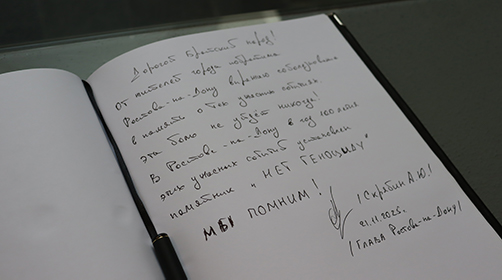 Дорогой Братский народ!
От жителей города побратима
Ростова-на-Дону выражаю соболезнования
в память о тех ужасных событиях.
Эта боль не уйдёт никогда!
В Ростове-на-Дону в год 100летия
этих ужасных событий установлен
памятник "НЕТ ГЕНОЦИДУ"
МЫ ПОМНИМ!
/Скрябин А.Ю./
21.11.2025.
/Глава Ростова-на-Дону/